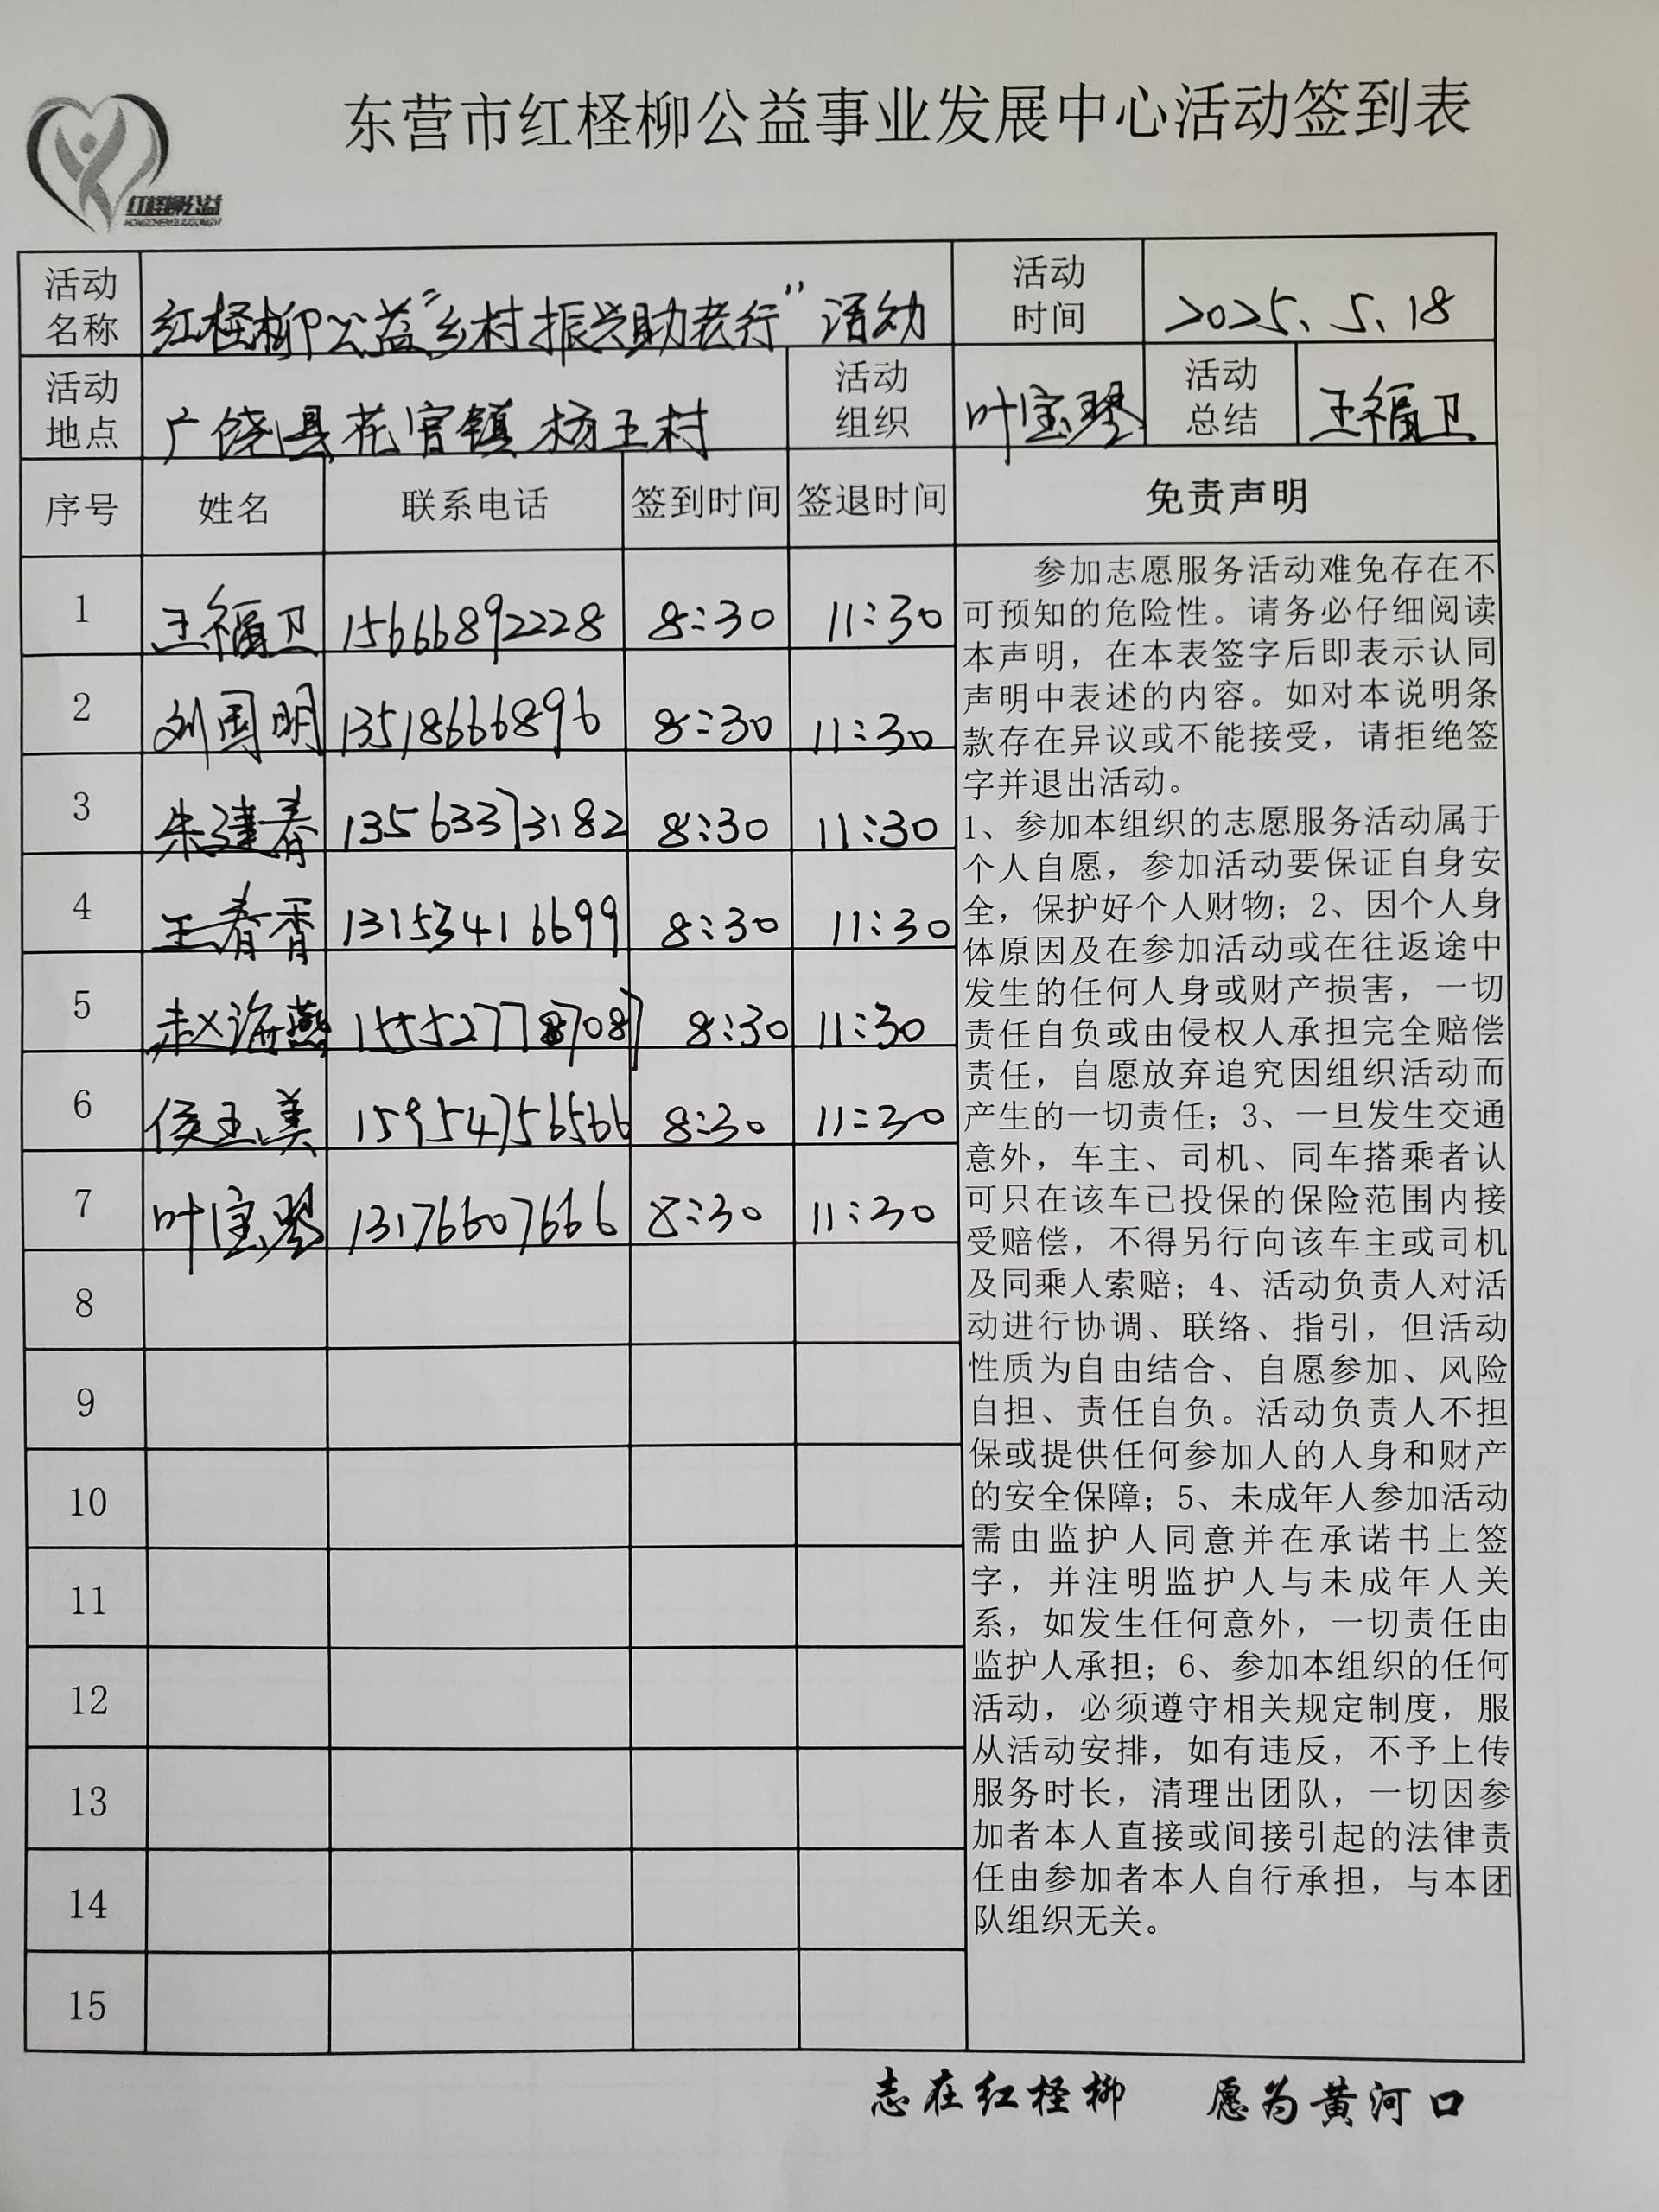 东营市红柽柳公益事业发展中心活动签到表
红柽柳公益
HONGCHENGLIUGONGYI
活动名称 红柽柳公益“乡村振兴助老行”活动 活动时间 2025、5、18
活动地点 广饶县花官镇杨王村 活动组织 叶宝琴 活动总结 王福卫
序号 姓名 联系电话 签到时间 签退时间 免责声明
1 王福卫 15666892228 8:30 11:30
2 刘国明 13518666896 8:30 11:30
3 朱建春 13563373182 8:30 11:30
4 王春香 13153416699 8:30 11:30
5 赵海燕 8:30 11:30
6 侯玉美 15954756566 8:30 11:30
7 叶宝琴 13176607666 8:30 11:30
8
9
10
11
12
13
14
15
参加志愿服务活动难免存在不
可预知的危险性。请务必仔细阅读
本声明，在本表签字后即表示认同
声明中表述的内容。如对本说明条
款存在异议或不能接受，请拒绝签
字并退出活动。
1、参加本组织的志愿服务活动属于
个人自愿，参加活动要保证自身安
全，保护好个人财物；2、因个人身
体原因及在参加活动或在往返途中
发生的任何人身或财产损害，一切
责任自负或由侵权人承担完全赔偿
责任，自愿放弃追究因组织活动而
产生的一切责任；3、一旦发生交通
意外，车主、司机、同车搭乘者认
可只在该车已投保的保险范围内接
受赔偿，不得另行向该车主或司机
及同乘人索赔；4、活动负责人对活
动进行协调、联络、指引，但活动
性质为自由结合、自愿参加、风险
自担、责任自负。活动负责人不担
保或提供任何参加人的人身和财产
的安全保障；5、未成年人参加活动
需由监护人同意并在承诺书上签
字，并注明监护人与未成年人关
系，如发生任何意外，一切责任由
监护人承担；6、参加本组织的任何
活动，必须遵守相关规定制度，服
从活动安排，如有违反，不予上传
服务时长，清理出团队，一切因参
加者本人直接或间接引起的法律责
任由参加者本人自行承担，与本团
队组织无关。
志在红柽柳 愿为黄河口